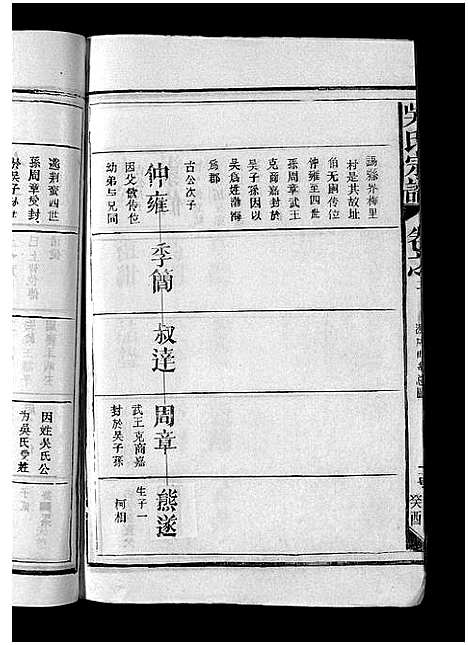 吳氏宗譜
癸酉
錫縣界梅里
村是其故址
伯无嗣传位
仲雍至四世
孫周章武王
克商嘉封於
吴子孫因以
吴為姓渤海
為郡
古公次子
仲雍
因父欲传位
幼弟与兄同
季簡
叔達
周章
武王克商嘉
封於吴子孫
熊遂
生子一
柯相
逃荆蛮四世
孫周章受封
於吴子孫
因姓吳氏公
为吳氏受姓